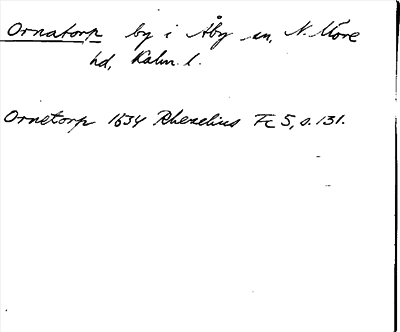 Ornatorp by i Åby sn, N. Möre
hd, Kalm. l.
Ornetorp 1634 Rhezelius Fc 5, s. 131.